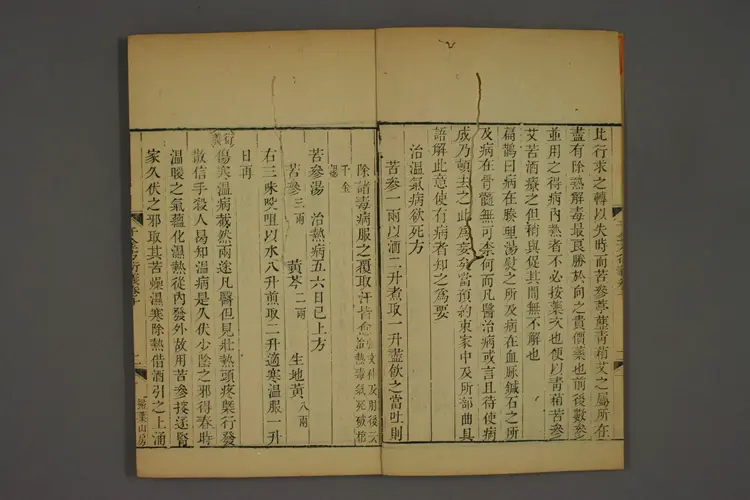 此行求之轉以失時而苦參葶藶青葙艾之屬所在
盡有除熱解毒最良勝於向之貴價藥也前後數參
並用之得病內熱者不必按藥次也便以青葙苦參
艾苦酒療之但稍與促其間無不解也
扁鵲曰病在腠理湯熨之所及病在血脈鍼石之所
及病在骨髓無可奈何而凡醫治病或言且待使病
成乃頓去之此為妄矣當預約束家中及所部曲具
語解此意使有病者知之為要
治溫氣病欲死方
苦參一兩以酒二升煮取一升盡飲之當吐則
除諸毒病服之覆取汗皆愈
千金
苦參湯 治熱病五六日已上方
苦參三兩 黃芩二兩 生地黃八兩
右三味㕮咀以水八升煎取二升適寒溫服一升
日再
衍義 傷寒溫病截然兩途凡醫但見壯熱頭疼槩行發
散信手殺人曷知溫病是久伏少陰之邪得春時
溫暖之氣蘊化濕熱從內發外故用苦參接逐腎
家久伏之邪取其苦燥濕寒除熱借酒引之上涌
千金方衍義卷十
二
掃葉山房